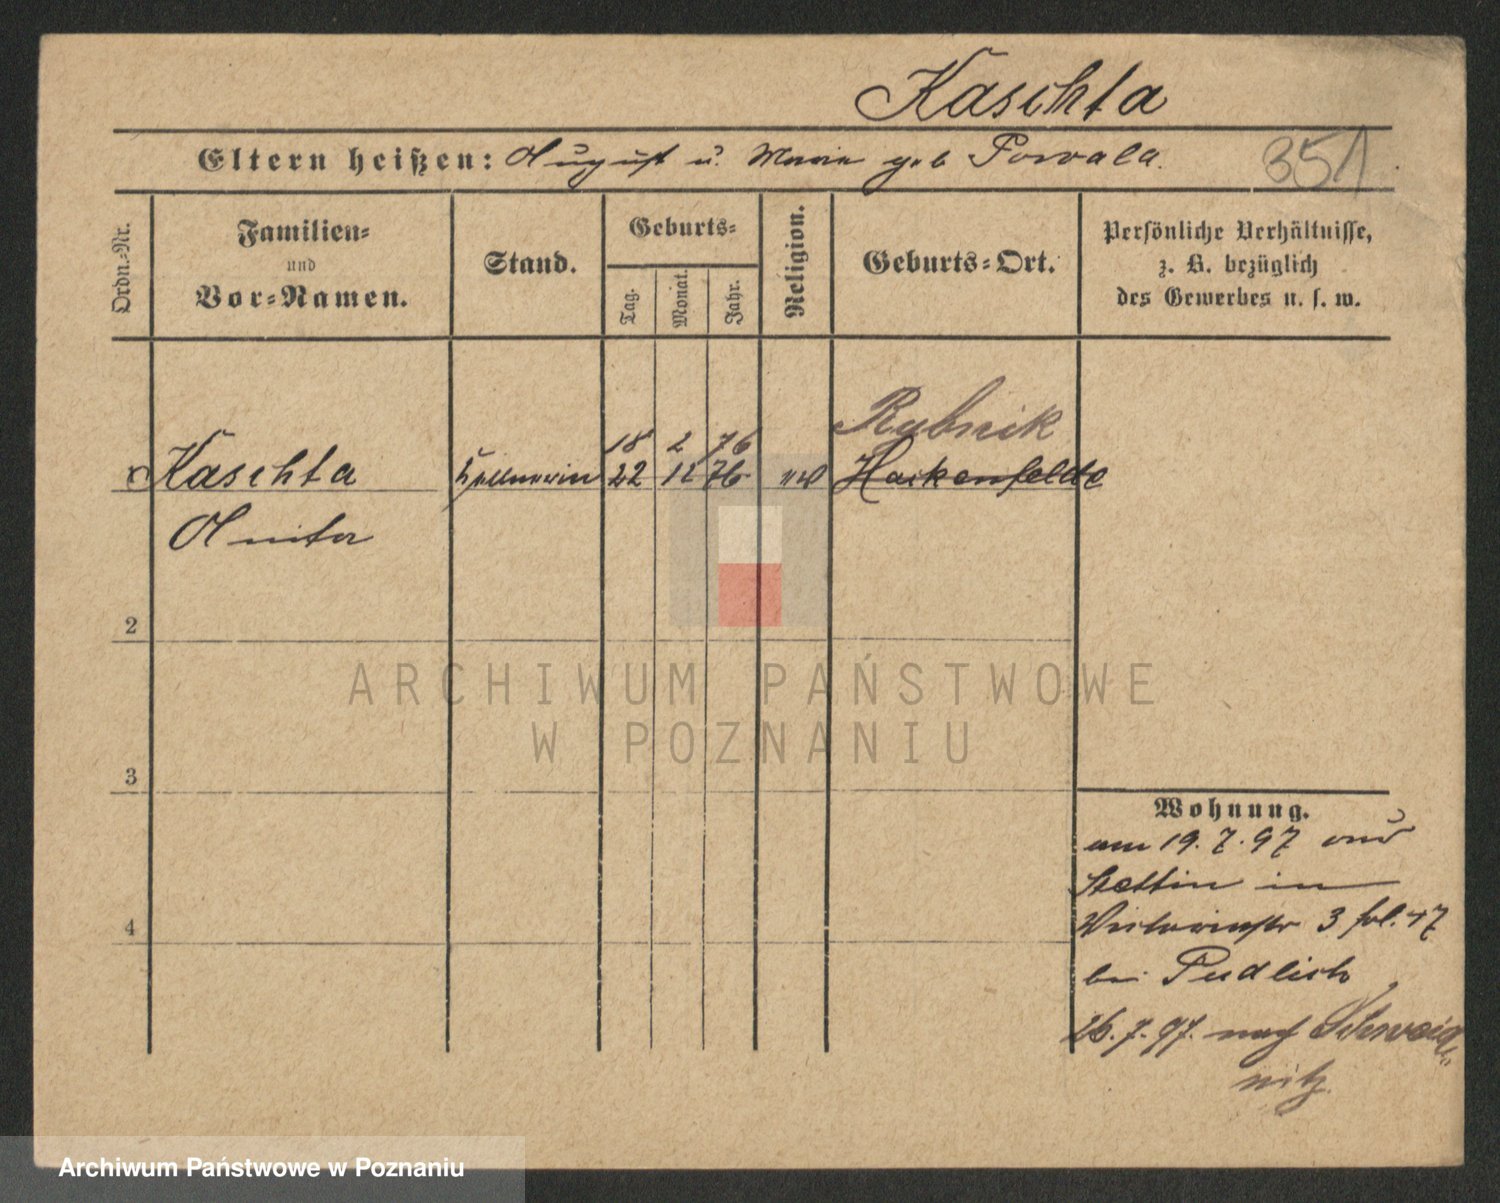 Kaschta
Eltern heißen: August u. Marie geb Powala.
351
Ordn.-Nr.
Familien-
und
Vor-Namen.
Stand.
Geburts-
Tag.
Monat.
Jahr.
Religion.
Geburts-Ort.
Persönliche Verhältnisse,
z. B. bezüglich
des Gewerbes u. s. w.
18 2 76
Rybnik
Kaschta Kellnerin 22 12 76 Hackenfelde
Anita
2
3
4
ARCHIWUM PAŃSTWOWE
W POZNANIU
Wohnung.
am 19.7.97 aus
Stettin in
Victoriastr 3 fol. 47
bei Pudlich
26.7.97. nach Schweid-
nitz
Archiwum Państwowe w Poznaniu